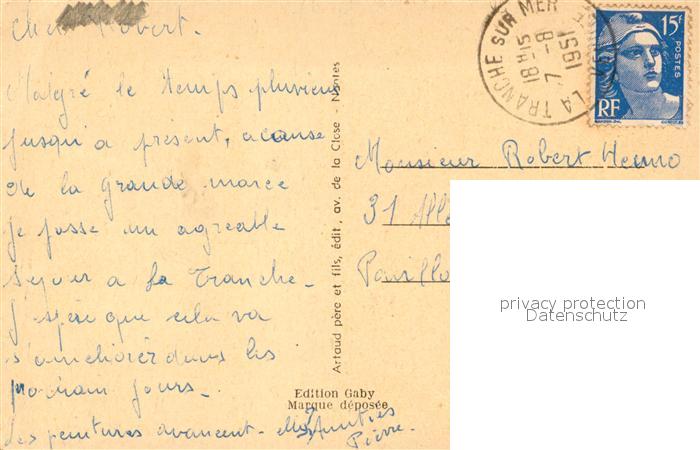 Cher Robert.
Malgré le temps pluvieux
jusqu'a présent, a cause
de la grande maree
je passe un agreable
sejour a la Tranche.
J'espère que cela va
s'améliorer dans les
prochain jours.
Les peintures avancent-elles ?
Amitiés
Pierre.
Artaud père et fils, édit, av. de la Close - Nantes
Edition Gaby
Marque déposée
LA TRANCHE SUR MER
18H15
7-8
1951
15F
POSTES
RF
Monsieur Robert
31 Allé
Pavillo
privacy protection
Datenschutz